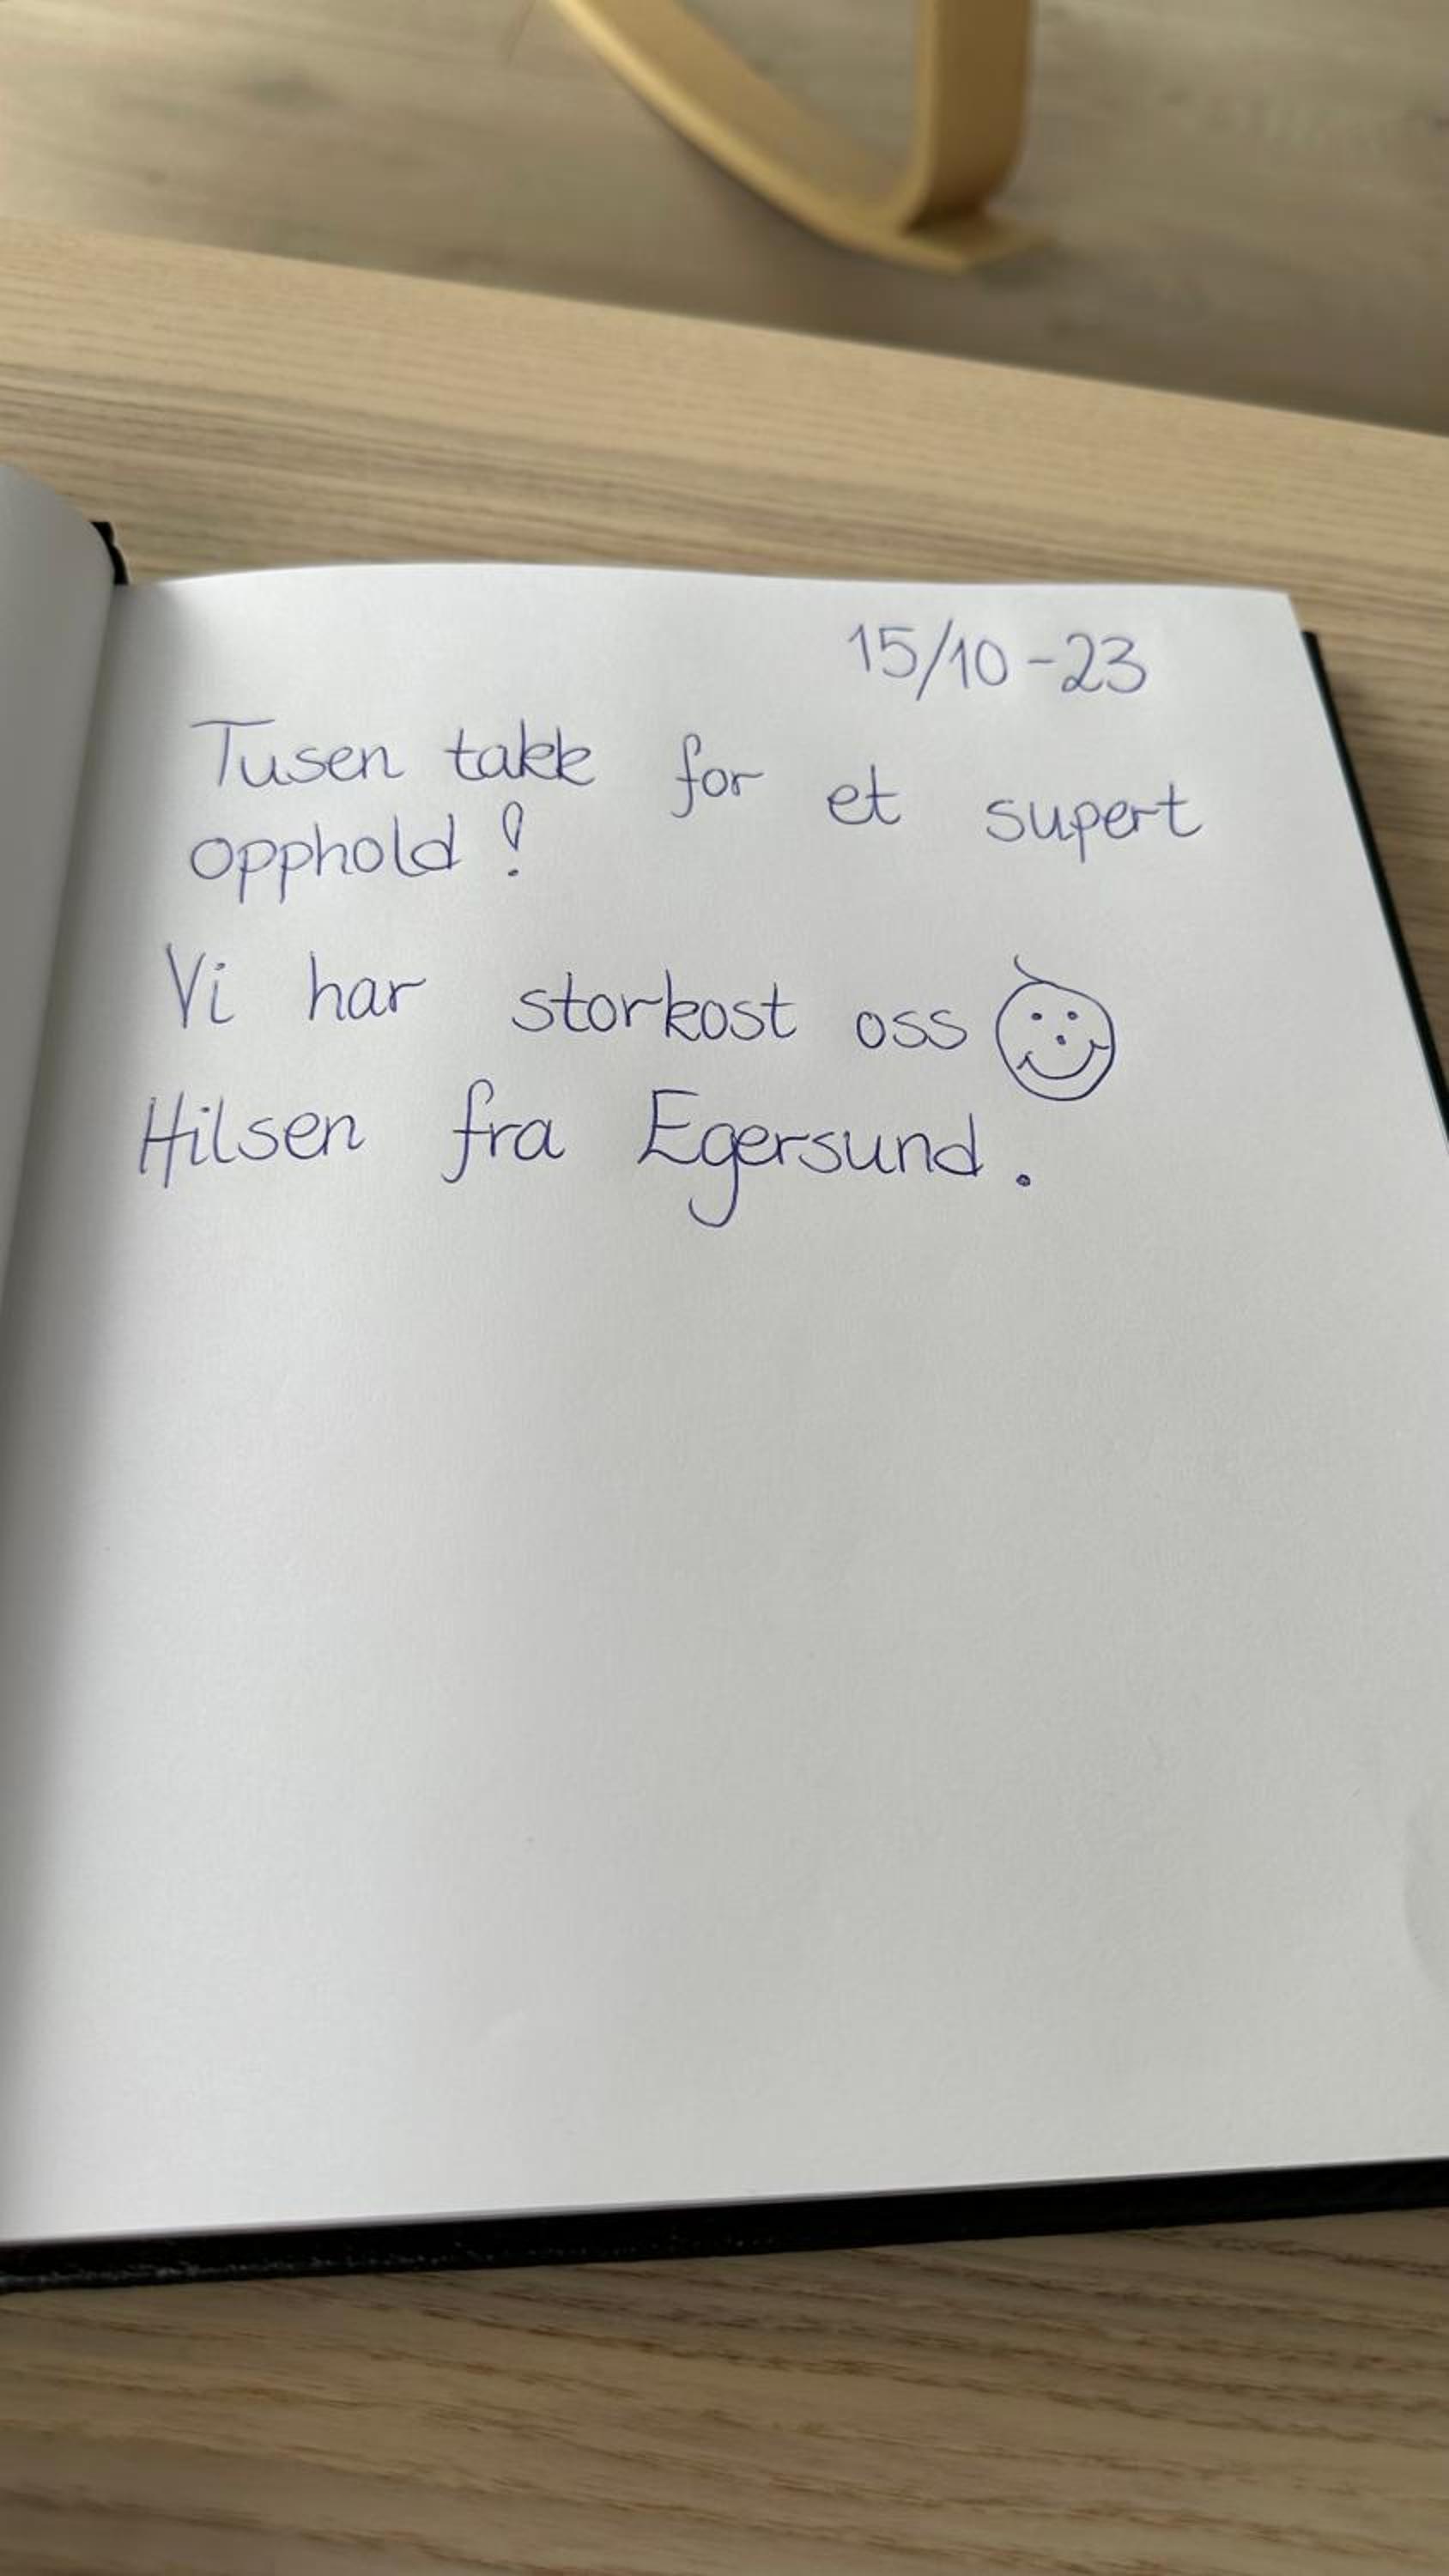 15/10-23
Tusen takk for et supert
opphold!
Vi har storkost oss
Hilsen fra Egersund.